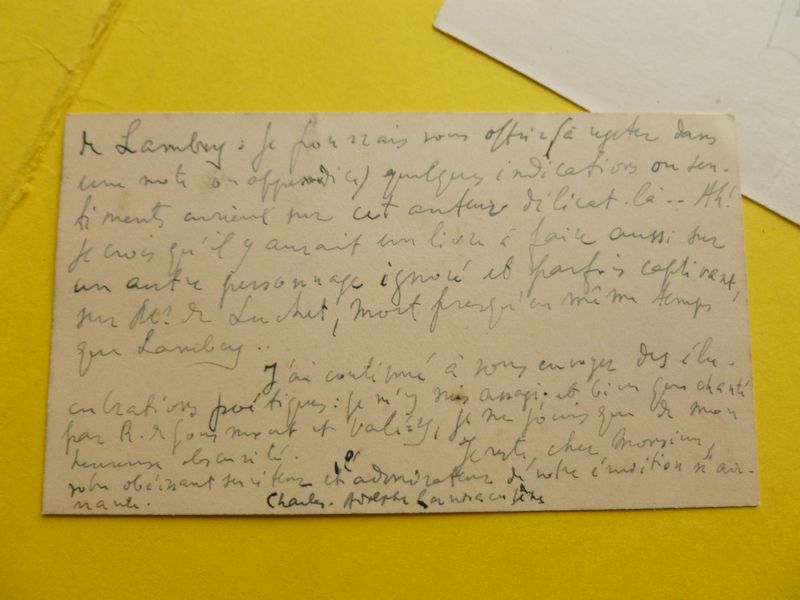 de Lamberg : je pourrais vous offrir (à rejeter dans
une note ou appendice) quelques indications ou sen-
timents curieux sur cet auteur délicat-là -- Ah!
je crois qu'il y aurait un livre à faire aussi sur
un autre personnage ignoré et parfois captivant,
sur de Luchet, mort presqu'en même temps
que Lamberg ..
J'ai continué à vous envoyer des élu-
cubrations poétiques : je m'y suis assagi et bien que chanté
par R. de Gourmont et Valéry, je ne jouis que de mon
heureuse obscurité. Je reste, cher Monsieur,
votre obéissant serviteur et admirateur de votre érudition
Charles-Adolphe Cantacuzène